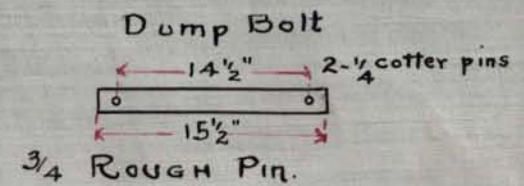 Dump Bolt
14½"
2-¼ cotter pins
15½"
¾ ROUGH PIN.